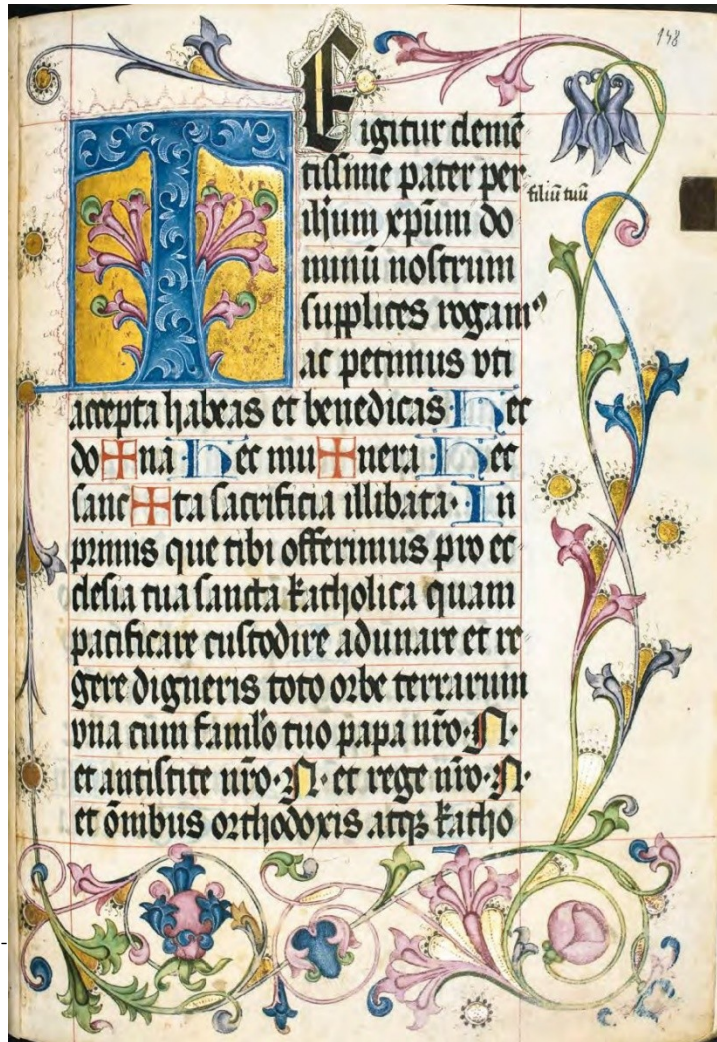 148
TE igitur clemē
tissime pater per
filiū tuū
ihūm xp̄um do
minū nostrum
supplices rogamꝰ
ac petimus vti
accepta habeas et benedicas · Hec
do✠na Hec mu✠nera Hec
sanc✠ta sacrificia illibata · In
primis que tibi offerimus pro ec
clesia tua sancta katholica quam
pacificare custodire adunare et re
gere digneris toto orbe terrarum
vna cum famło tuo papa nr̄o · N ·
et antistite nr̄o · N · et rege nr̄o · N ·
et ōmibus orthodoxis atqꝫ katho